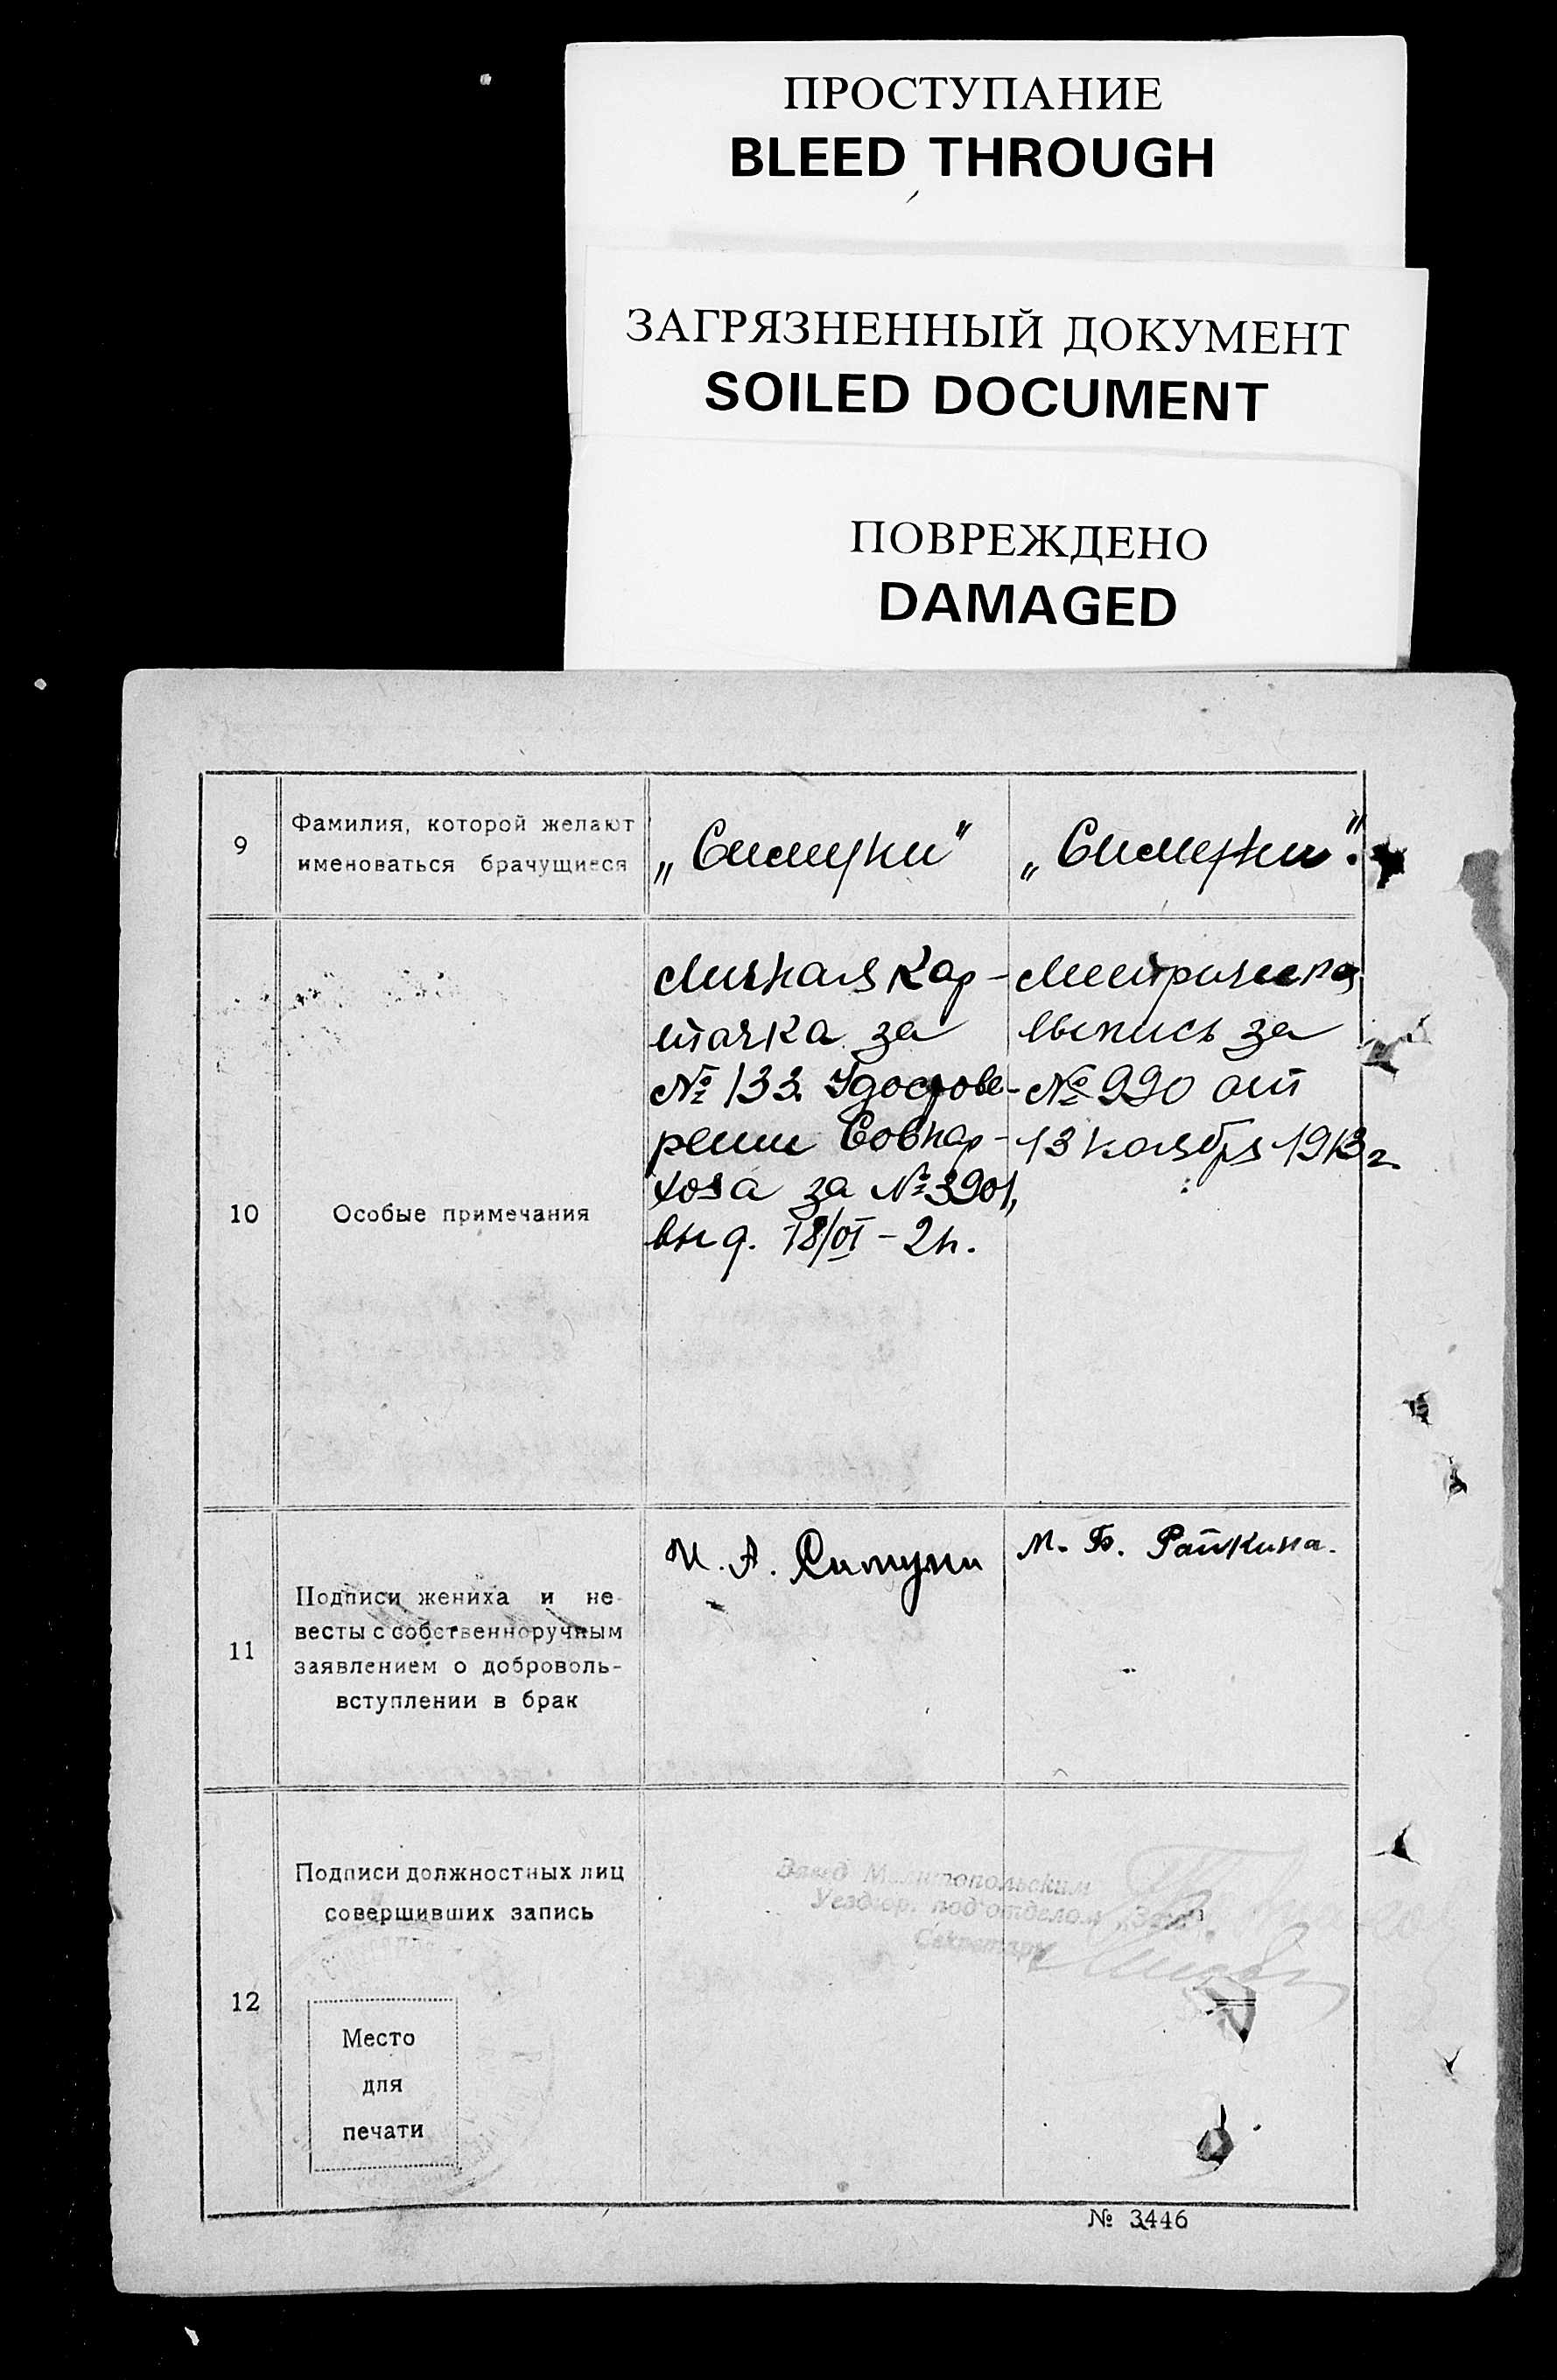 ПРОСТУПАНИЕ
BLEED THROUGH
ЗАГРЯЗНЕННЫЙ ДОКУМЕНТ
SOILED DOCUMENT
ПОВРЕЖДЕНО
DAMAGED
9
Фамилия, которой желают
именоваться брачущиеся
„Симуни“
„Симуни“.
10
Особые примечания
Личная кар-
точка за
№ 133. Удостове-
рении Совнар-
хоза за № 3901,
выд. 18/VI – 2 г.
Метрическая
выпись за
№ 990 от
13 ноября 1913 г.
11
Подписи жениха и не-
весты с собственноручным
заявлением о доброволь-
вступлении в брак
И. А. Симуни
М. Б. Райкина.
12
Подписи должностных лиц
совершивших запись
Место
для
печати
Завед Мелитопольским
Уездюр. под'отделом „Загс“
Секретарь
№ 3446